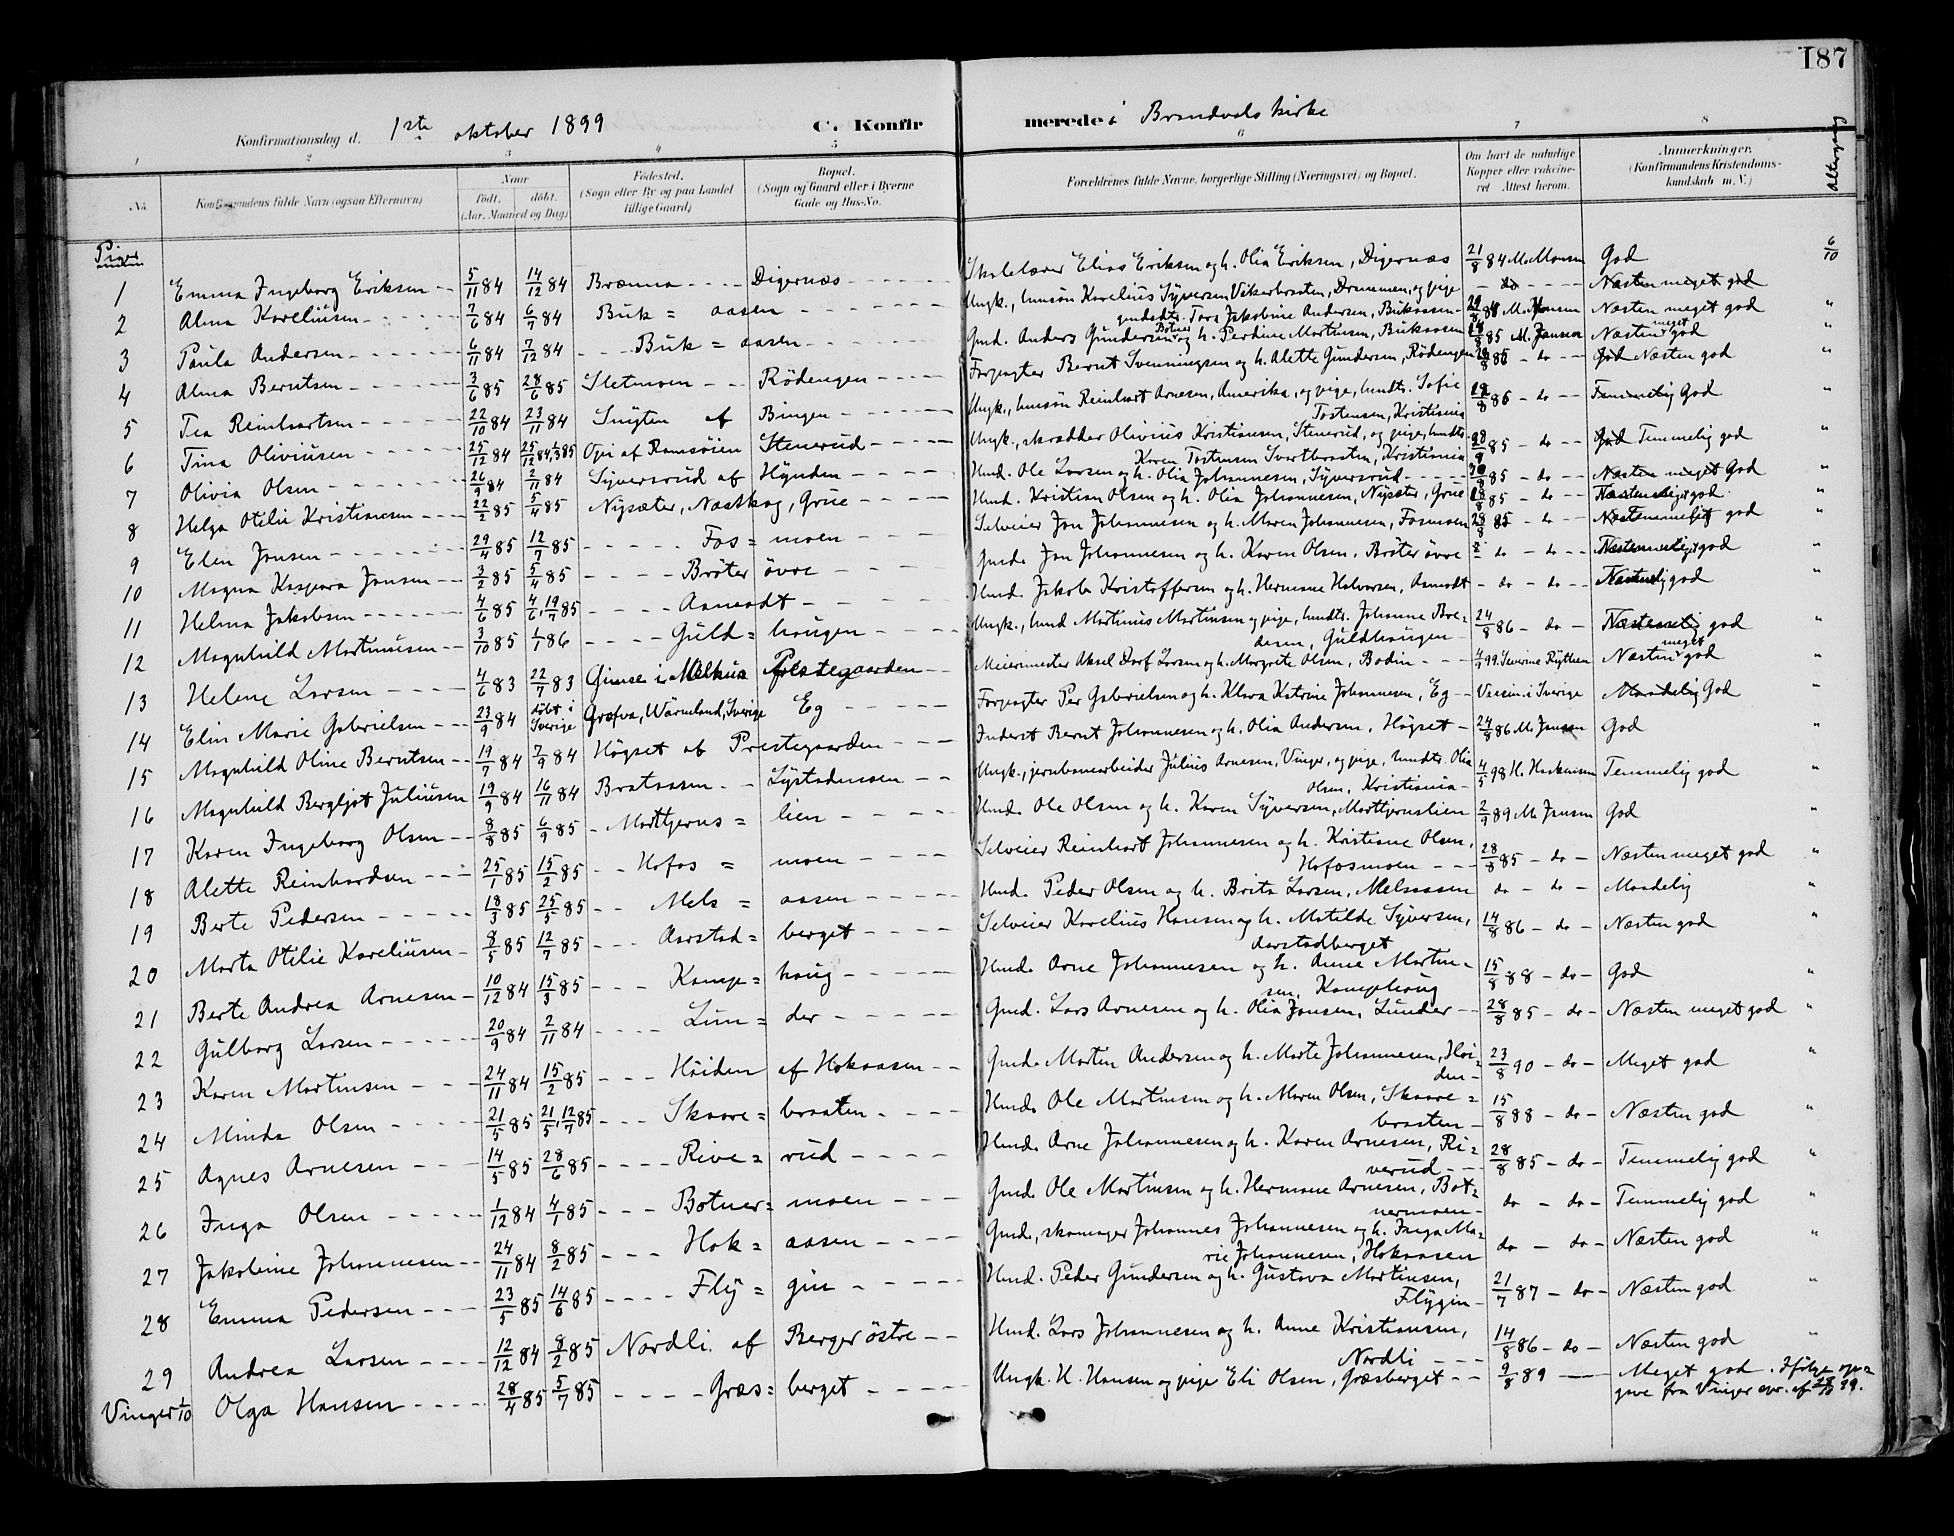 187
Konfirmationsdag d. 1ste oktober 1899 C. Konfir merede i Brandvals kirke
1 2 3 4 5 6 7 8
No. Konfirmandens fulde Navn (ogsaa Efternavn) Naar født, døbt. (Aar, Maaned og Dag) Fødested. (Sogn eller By og paa Landet tillige Gaard) Bopæl. (Sogn og Gaard eller i Byerne Gade og Hus-No. Forældrenes fulde Navne, borgerlige Stilling (Næringsvei) og Bopæl. Om havt de naturlige Kopper eller vaccineret Attest herom. Anmærkninger. (Konfirmandens Kristendomskundskab m. V.) Altergang
Piger
1 Emma Ingeborg Eriksen 5/11 84 14/12 84 Brænna Digernæs Skolelærer Elias Eriksen og h. Olia Eriksen, Digernæs 21/8 84 M. Monsen God 6/10
2 Alma Koreliusen 7/6 84 6/7 84 Buk= aasen Ungk., husøn Korelius Syversen Vikerbraaten, Drammen, og pige - do - Næsten meget god
gaardsdtr. Tora Jakobine Andersen, Bukaasen
3 Paula Andersen 6/11 84 7/12 84 Buk= aasen Gmd. Anders Gundersen Botner og h. Perdine Martinsen, Bukaasen 85 M. Jansen Næsten meget god "
4 Alma Berntsen 3/6 85 28/6 85 Sletmoen Rödengen Forpagter Bernt Svenningsen og h. Alette Gundersen, Rödengen 86 - do - Næsten god "
5 Tea Reinhartsen 22/10 84 23/11 84 Snugten af Bingen Ungk., husøn Reinhart Arnesen, Amerika, og pige, husdtr. Sofie Tostensen, Kristiania 86 - do - God "
6 Tina Oliviusen 25/12 84 Opi af Ramsöien Stenerud Ungk., skrædder Olivius Kristiansen, Stenerud, og pige, husdtr. Karen Tostensen Svartbraaten, Kristiania 28/8 85 - do - Temmelig god "
7 Olivia Olsen 26/9 84 2/11 84 Syversrud af Hynden Hmd. Ole Larsen og h. Olia Johannesen, Syversrud 85 - do - God "
8 Helga Otilie Kristiansen 22/2 85 5/4 85 Nysæter, Næstkog, Grue Hmd. Kristian Olsen og h. Olia Johannesen, Nysæter, Grue 85 - do - god "
9 Elen Jansen 29/4 85 12/7 85 Fos= moen Selveier Jan Johannesen og h. Maren Johannesen, Fosmoen 28/8 85 - do - god "
10 Magna Kaspara Jansen 3/2 85 5/4 85 Bröter övre Gmd. Jan Johannesen og h. Karen Olsen, Bröter övre - do - do - god "
11 Helma Jakobsen 4/6 85 4/6, 19/7 85 Aamodt Hmd. Jakob Kristoffersen og h. Hermane Halvorsen, Aamodt - do - do - god "
12 Magnhild Martinusen 3/10 85 1/1 86 Guld= haugen Ungk., hmd Martinus Martinsen og pige, husdtr. Johanne Boe= desen, Guldhaugen 24/8 86 - do - god "
13 Helene Larsen 4/6 83 22/7 83 Gimse i Melhus Prestegaarden Meierimester Aksel Dorf Larsen og h. Margrete Olsen, Bodin 99. Severine Rytter Næsten meget god "
14 Elin Marie Gabrielsen 23/9 84 döbt i Sverige Græfva, Wärmland, Sverige Eg Forpagter Per Gabrielsen og h. Klara Katrine Johannesen, Eg Vaccin. i Sverige Maadelig God "
15 Magnhild Oline Berntsen 19/7 84 7/9 84 Högset af Prestegaarden Inderst Bernt Johannesen og h. Olia Andersen, Högset 24/8 86 M. Jansen God "
16 Magnhild Bergljot Juliusen 19/9 84 16/11 84 Brataasen Lystadmoen Ungk., jernbanearbeider Julius Arnesen, Vinger, og pige, husdtr. Olia Olsen, Kristiania 4/5 98 H. Haakensen Temmelig god "
17 Karen Ingeborg Olsen 8/8 85 6/9 85 Morttjerns= lien Hmd. Ole Olsen og h. Karen Syversen, Morttjernslien 2/9 89 M. Jansen God "
18 Alette Reinhardsen 25/1 85 15/2 85 Hofos= moen Selveier Reinhart Johannesen og h. Kristiane Olsen, Hofosmoen 28/8 85 - do - Næsten meget god "
19 Berte Pedersen 18/3 85 25/5 85 Mels= aasen Hmd. Peder Olsen og h. Brita Larsen, Melsaasen do - do - Maadelig "
20 Marta Otilie Koreliusen 8/5 85 12/7 85 Aarstad= berget Selveier Korelius Hansen og h. Matilde Syversen, Aarstadberget 14/8 86 - do - Næsten god "
21 Berte Andrea Arnesen 10/12 84 15/3 85 Kamp= haug Hmd. Arne Johannesen og h. Anne Martin= sen, Kamphaug 15/8 88 - do - God "
22 Gulborg Larsen 20/9 84 2/11 84 Lun= der Gmd. Lars Arnesen og h. Olia Jansen, Lunder 28/8 85 - do - Næsten meget god "
23 Karen Martinsen 24/11 84 15/2 85 Höiden af Hokaasen Gmd. Martin Andersen og h. Marte Johannesen, Höi= den 23/8 90 - do - Meget god "
24 Minda Olsen 21/5 85 21/5, 12/7 85 Skaare= braaten Hmd. Ole Martinsen og h. Maren Olsen, Skaare= braaten 15/8 88 - do - Næsten god "
25 Agnes Arnesen 14/5 85 28/6 85 Rive= rud Hmd. Arne Johannesen og h. Karen Arnesen, Ri= verud 28/8 85 - do - Temmelig god "
26 Inga Olsen 1/12 84 4/1 85 Botner= moen Gmd. Ole Martinsen og h. Hermane Arnesen, Bot= nermoen do - do - Temmelig god "
27 Jakobine Johannesen 24/11 84 8/2 85 Hok= aasen Gmd., skomager Johannes Johannesen og h. Inga Ma= rie Johannesen, Hokaasen do - do - Næsten god "
28 Emma Pedersen 23/5 85 14/6 85 Fly= gin Hmd. Peder Gundersen og h. Gustava Martinsen, Flygin 21/7 87 - do - Næsten god "
29 Andrea Larsen 12/12 84 8/2 85 Nordli af Berger östre Hmd. Lars Johannesen og h. Anne Kristiansen, Nordli 14/8 86 - do - Næsten god "
Vinger 1/10 Olga Hansen 28/4 85 5/7 85 Græs= berget Ungk. H. Hansen og pige Eli Olsen, Græsberget 9/8 89 Meget god. Ifölge op= gave fra Vinger spr. af 99.